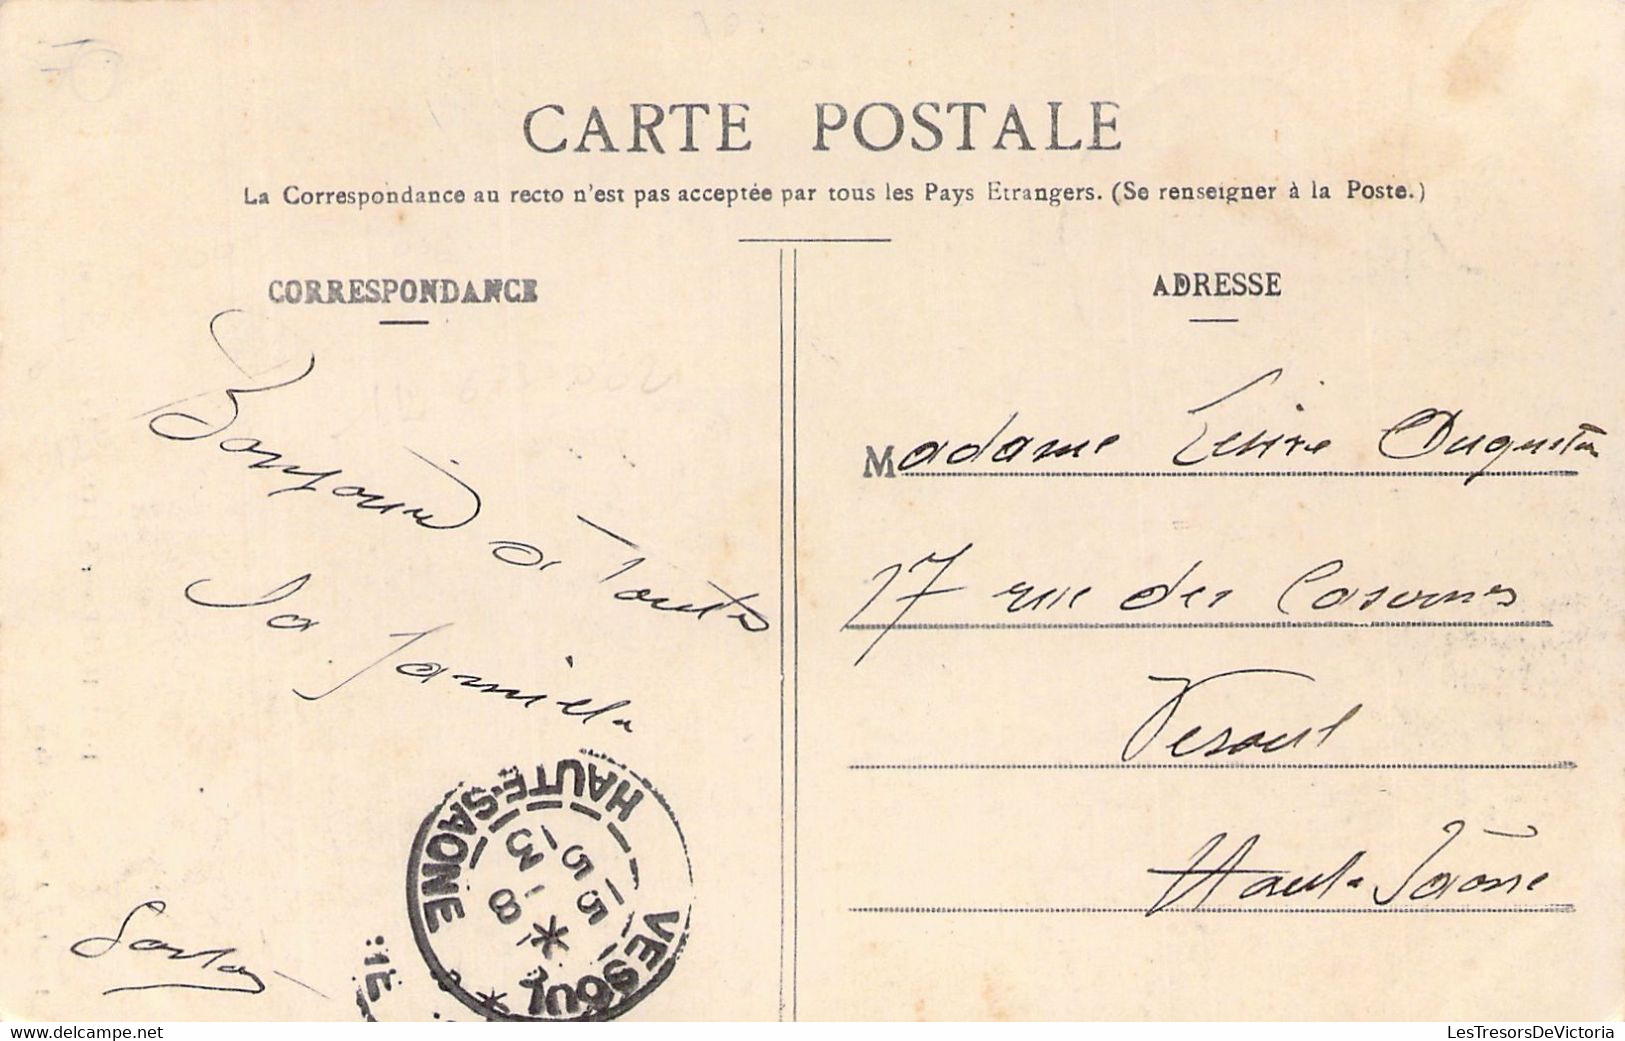 CARTE POSTALE
La Correspondance au recto n'est pas acceptée par tous les Pays Etrangers. (Se renseigner à la Poste.)
CORRESPONDANCE
Bonjour à toute
la famille
ADRESSE
Madame
27 rue des Casernes
Vesoul
Haute Saône
VESOUL
HAUTE-SAONE
LesTresorsDeVictoria.com